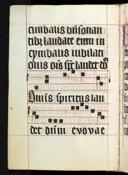 cimbalis bn̄sonan
tibꝫ laudate eum in
cymbalis iubilati
onis oīs sp̄s laudet do
Omis spiritus lau
det dn̄m evovae